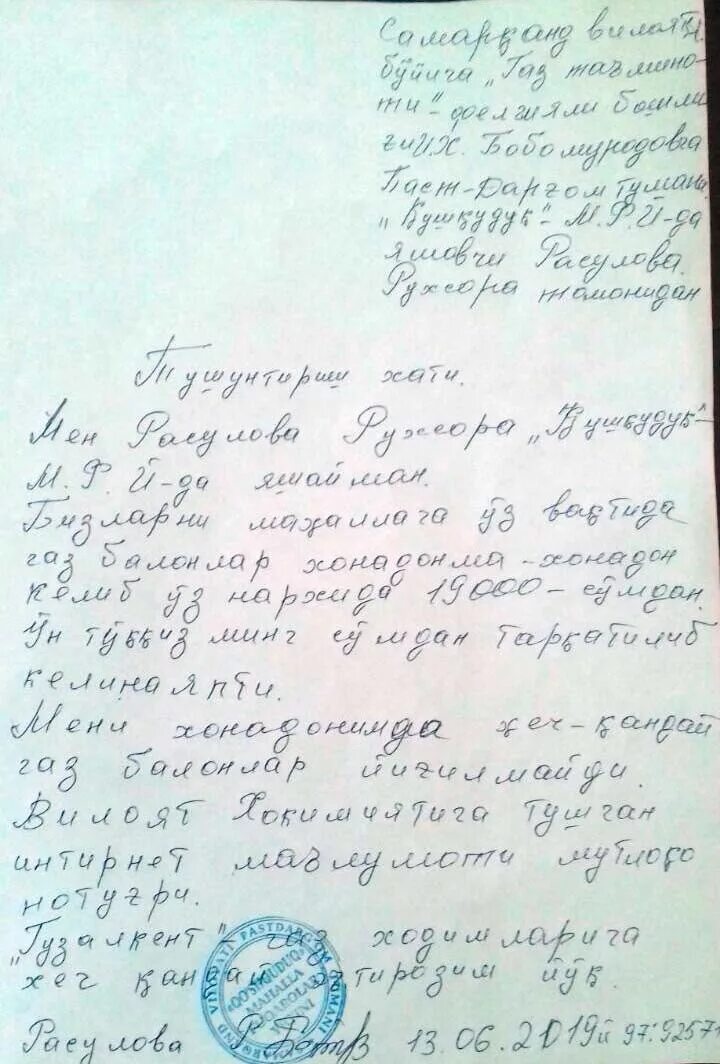 Самарқанд вилояти
бўйича „Газ таъмино-
ти"- филгияли бошли
ғи И.Х. Бобомуродовга
Паст-Дарғом тумани
„Қушқудуқ"- М.Ф.Й-да
яшовчи Расулова
Рухсора томонидан
Тушунтириш хати.
Мен Расулова Рухсора „Қушқудуқ"-
М.Ф.Й-да яшайман.
Бизларни маҳаллага ўз вақтида
газ балонлар хонадонма-хонадон
келиб ўз нархида 19000-сўмдан.
Ўн тўққиз минг сўмдан тарқатилиб
келинаяпти.
Мени хонадонимда ҳеч-қандай
газ балонлар йиғилмайди.
Вилоят Ҳокимиятига тушган
интирнет маълумоти мутлоқо
нотуғри.
„Гузалкент" газ ходимларига
ҳеч қандай эътирозим йўқ.
"QO'SHQUDUQ"
MAHALLA
Расулова 13.06.2019й